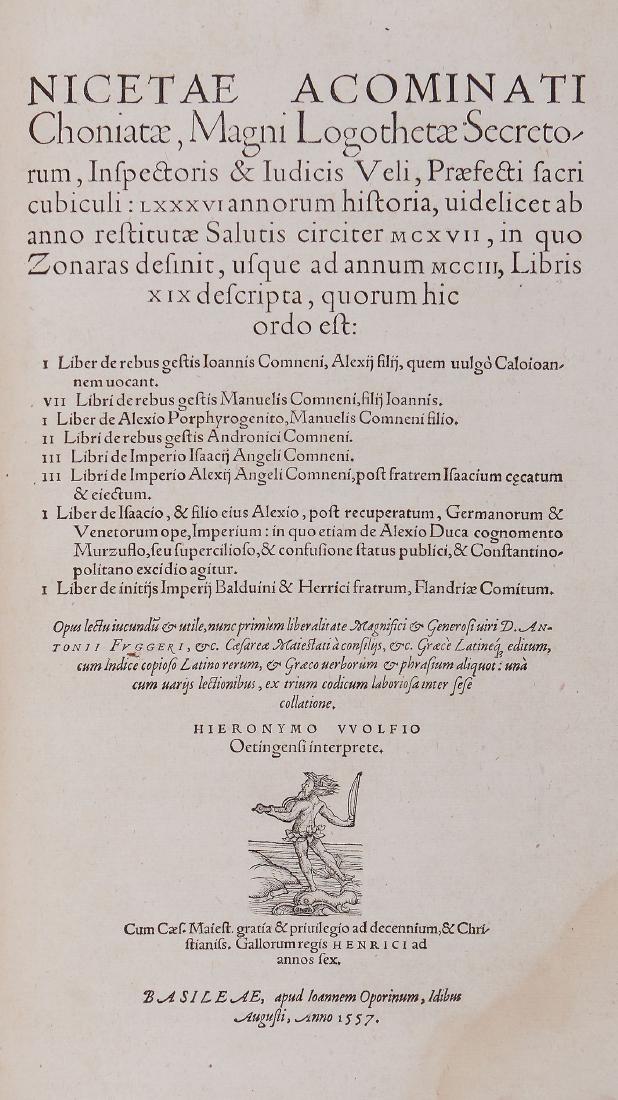 NICETAE ACOMINATI
Choniatæ, Magni Logothetæ Secreto-
rum, Inſpectoris & Iudicis Veli, Præfecti ſacri
cubiculi: LXXXVI annorum hiſtoria, uidelicet ab
anno reſtitutæ Salutis circiter MCXVII, in quo
Zonaras deſinit, uſque ad annum MCCIII, Libris
XIX deſcripta, quorum hic
ordo eſt:
I Liber de rebus geſtis Ioannis Comneni, Alexij filij, quem uulgò Caloioan-
nem uocant.
VII Libri de rebus geſtis Manuelis Comneni, filij Ioannis.
I Liber de Alexio Porphyrogenito, Manuelis Comneni filio.
II Libri de rebus geſtis Andronici Comneni.
III Libri de Imperio Iſaacij Angeli Comneni.
III Libri de Imperio Alexij Angeli Comneni, poſt fratrem Iſaacium cęcatum
& eiectum.
I Liber de Iſaacio, & filio eius Alexio, poſt recuperatum, Germanorum &
Venetorum ope, Imperium: in quo etiam de Alexio Duca cognomento
Murzuflo, ſeu ſupercilioſo, & confuſione ſtatus publici, & Conſtantino-
politano excidio agitur.
I Liber de initijs Imperij Balduini & Herrici fratrum, Flandriæ Comitum.
Opus lectu iucundũ & utile, nunc primùm liberalitate Magnifici & Generoſi uiri D. AN-
TONII FVGGERI, &c. Cæſareæ Maieſtati à conſilijs, &c. Græcè Latineq́; editum,
cum Indice copioſo Latino rerum, & Græco uerborum & phraſium aliquot: unà
cum uarijs lectionibus, ex trium codicum laborioſa inter ſeſe
collatione.
HIERONYMO VVOLFIO
Oetingenſi interprete.
Cum Cæſ. Maieſt. gratia & priuilegio ad decennium, & Chri-
ſtianiſs. Gallorum regis HENRICI ad
annos ſex.
BASILEAE, apud Ioannem Oporinum, Idibus
Auguſti, Anno 1557.